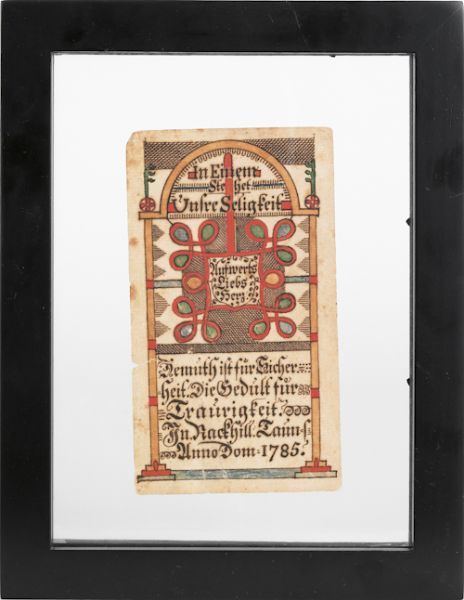 In Einem
Stehet
Unsre Seligkeit
Aufwerts
Liebs
Herz
Demuth ist für Sicher
heit. Die Gedult für
Traurigkeit.
In Rackhill Taun-
Anno Dom 1785.